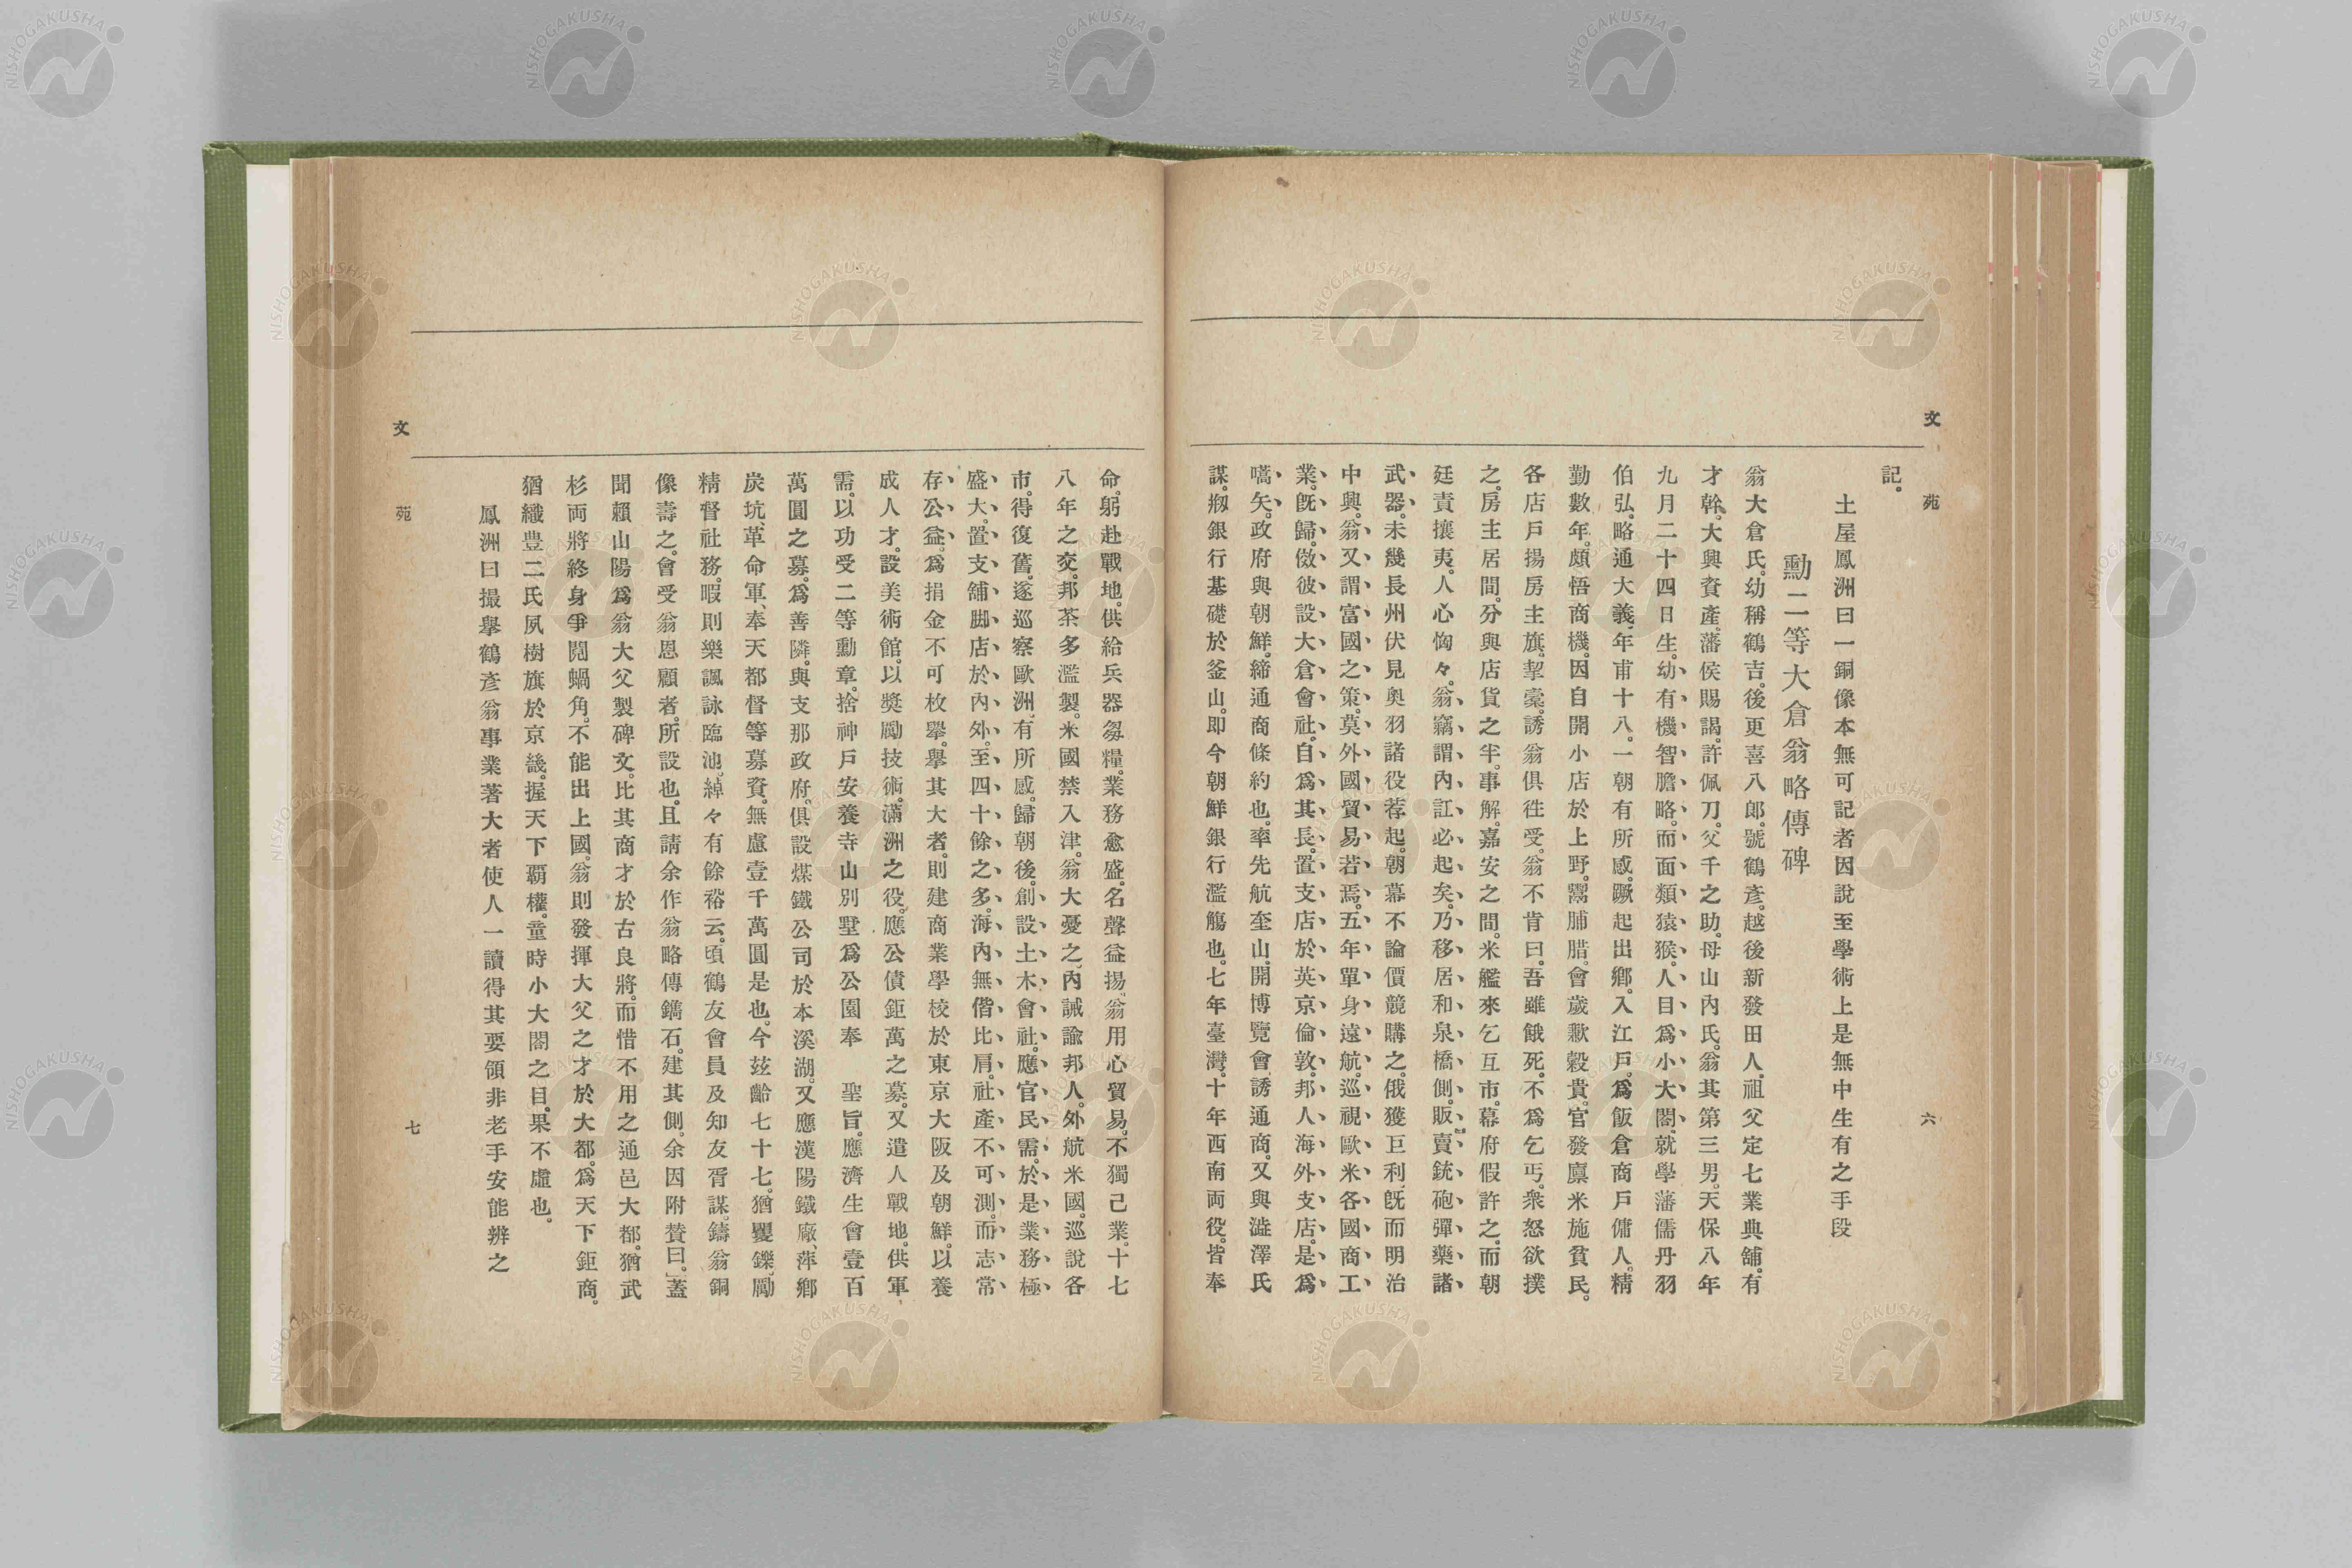 文苑 六
記。
土屋鳳洲曰一銅像本無可記者因說至學術上是無中生有之手段
勳二等大倉翁略傳碑
翁大倉氏。幼稱鶴吉。後更喜八郎。號鶴彥。越後新發田人。祖父定七業典舖。有
才幹。大興資產。藩侯賜謁。許佩刀。父千之助。母山內氏。翁其第三男。天保八年
九月二十四日生。幼有機智膽略。而面類猿猴。人目爲小大閤。就學藩儒丹羽
伯弘。略通大義。年甫十八。一朝有所感。蹶起出鄉。入江戶。爲飯倉商戶傭人。精
勤數年。頗悟商機。因自開小店於上野。鬻脯腊。會歲歉穀貴。官發廩米施貧民。
各店戶揚房主旗。挈橐。誘翁俱徃受。翁不肯曰。吾雖餓死。不爲乞丐。衆怒欲撲
之。房主居間。分與店貨之半。事解。嘉安之間。米艦來乞互市。幕府假許之。而朝
廷責攘夷。人心恟々。翁竊謂、內訌必起矣。乃移居和泉橋側。販賣銃砲彈藥諸
武器。未幾長州伏見奧羽諸役荐起。朝幕不論價競購之。俄獲巨利。旣而明治
中興。翁又謂富國之策。莫外國貿易若焉。五年單身遠航。巡視歐米各國商工
業。旣歸。倣彼設大倉會社。自爲其長。置支店於英京倫敦。邦人海外支店。是爲
嚆矢。政府與朝鮮。締通商條約也。率先航釜山。開博覽會。誘通商。又與澁澤氏
謀。剏銀行基礎於釜山。即今朝鮮銀行濫觴也。七年臺灣。十年西南両役。皆奉
命。躬赴戰地。供給兵器芻糧。業務愈盛。名聲益揚。翁用心貿易。不獨己業。十七
八年之交。邦茶多濫製。米國禁入津。翁大憂之、內誡諭邦人。外航米國。巡說各
市。得復舊。遂巡察歐洲、有所感。歸朝後。創設土木會社。應官民需。於是業務極
盛大。置支舖脚店於內外。至四十餘之多。海內無偕比肩。社產不可測。而志常
存公益。爲捐金不可枚舉。舉其大者。則建商業學校於東京大阪及朝鮮。以養
成人才。設美術館。以奬勵技術。滿洲之役。應公債鉅萬之募。又遣人戰地。供軍
需。以功受二等勳章。捨神戶安養寺山別墅爲公園奉　聖旨。應濟生會壹百
萬圓之募。爲善隣。與支那政府。俱設煤鐵公司於本溪湖。又應漢陽鐵廠、萍鄉
炭坑、革命軍、奉天都督等募資。無慮壹千萬圓是也。今玆齡七十七。猶矍鑠。勵
精督社務。暇則樂諷詠臨池。綽々有餘裕云。頃鶴友會員及知友胥謀。鑄翁銅
像壽之。會受翁恩顧者。所設也。且請余作翁略傳鐫石。建其側。余因附贊曰。蓋
聞賴山陽爲翁大父製碑文。比其商才於古良將。而惜不用之通邑大都。猶武
杉両將終身爭鬩蝸角。不能出上國。翁則發揮大父之才於大都。爲天下鉅商。
猶織豊二氏夙樹旗於京畿。握天下覇權。童時小大閤之目。果不虛也。
鳳洲曰撮舉鶴彥翁事業著大者使人一讀得其要領非老手安能辨之
文苑 七